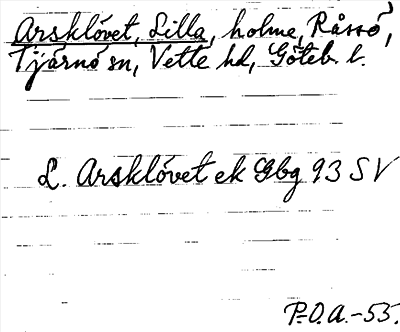 Arsklóvet, Lilla, holme, Råssö,
Tjärnö sn, Vette hd, Göteb. l.
L. Arsklóvet ek Gbg 93 SV
P.O.A. -55.